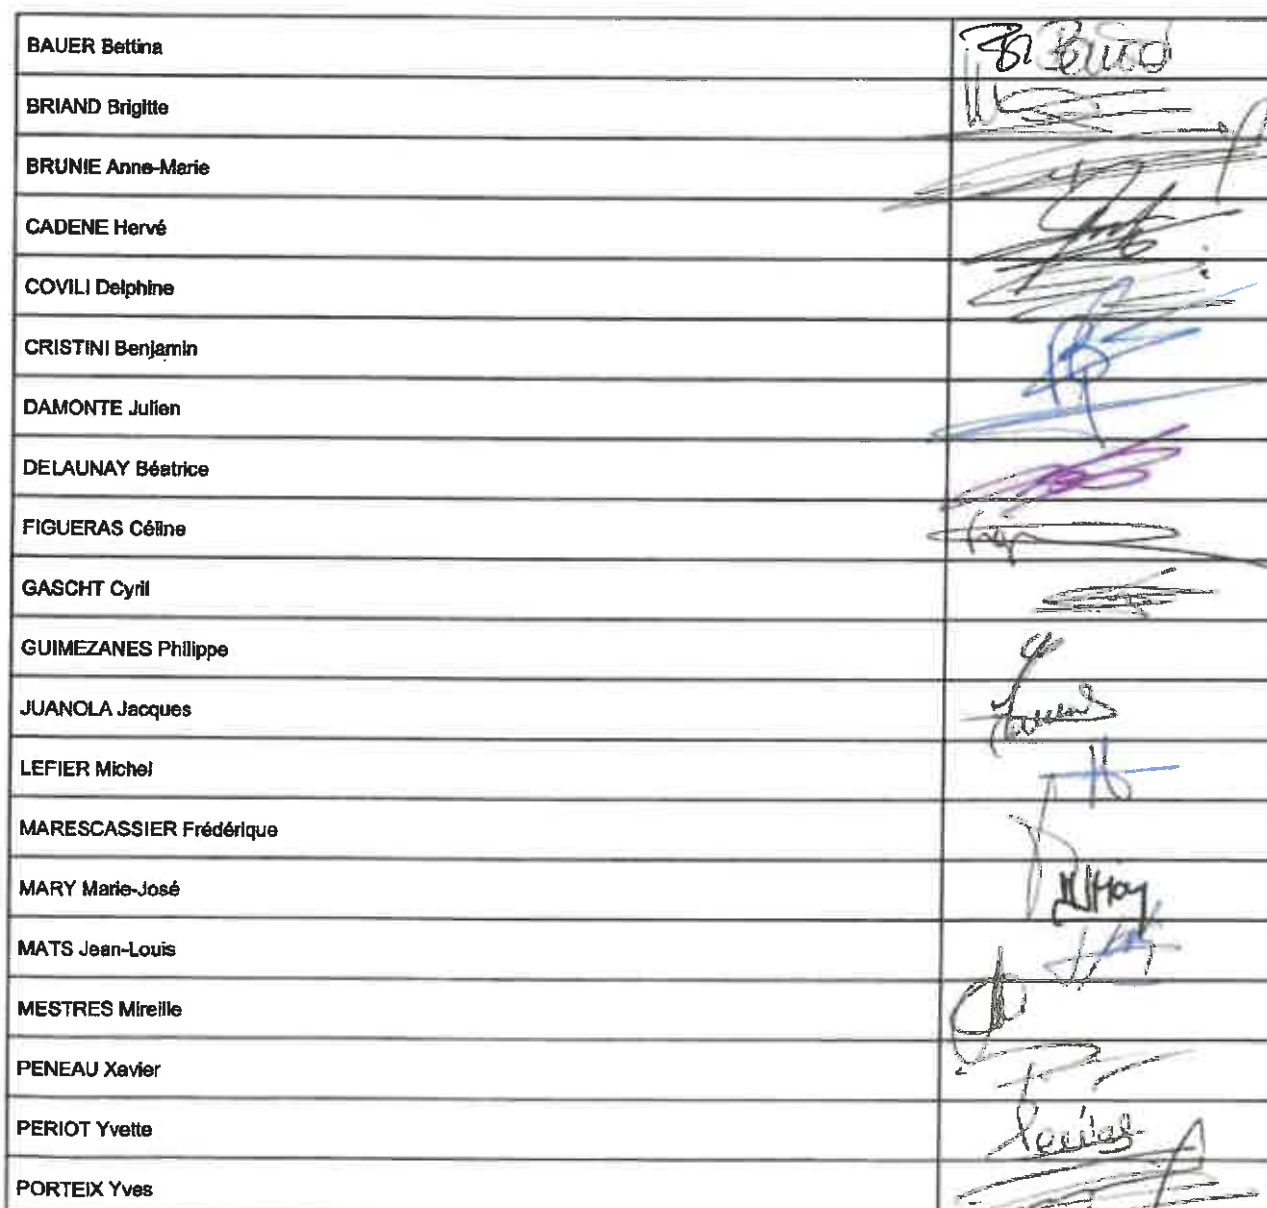 BAUER Bettina
BRIAND Brigitte
BRUNIE Anne-Marie
CADENE Hervé
COVILI Delphine
CRISTINI Benjamin
DAMONTE Julien
DELAUNAY Béatrice
FIGUERAS Céline
GASCHT Cyril
GUIMEZANES Philippe
JUANOLA Jacques
LEFIER Michel
MARESCASSIER Frédérique
MARY Marie-José
MATS Jean-Louis
MESTRES Mireille
PENEAU Xavier
PERIOT Yvette
PORTEIX Yves